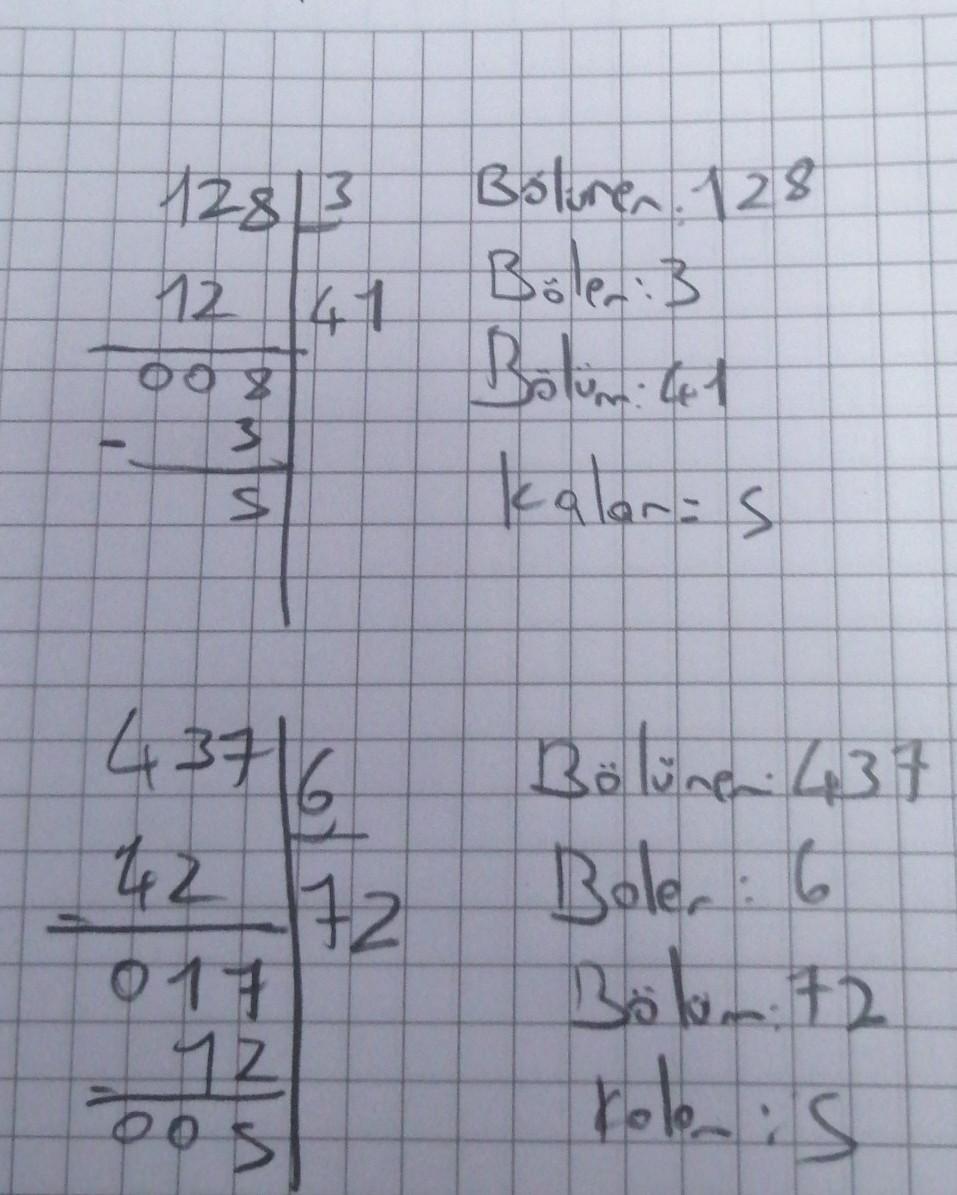 128 3 Bölünen: 128
12 41 Bölen: 3
008 Bölüm: 41
- 3
5 Kalan= 5
437 6 Bölünen: 437
42 72 Bolen: 6
017 Bölüm: 72
12
005 kalan: 5